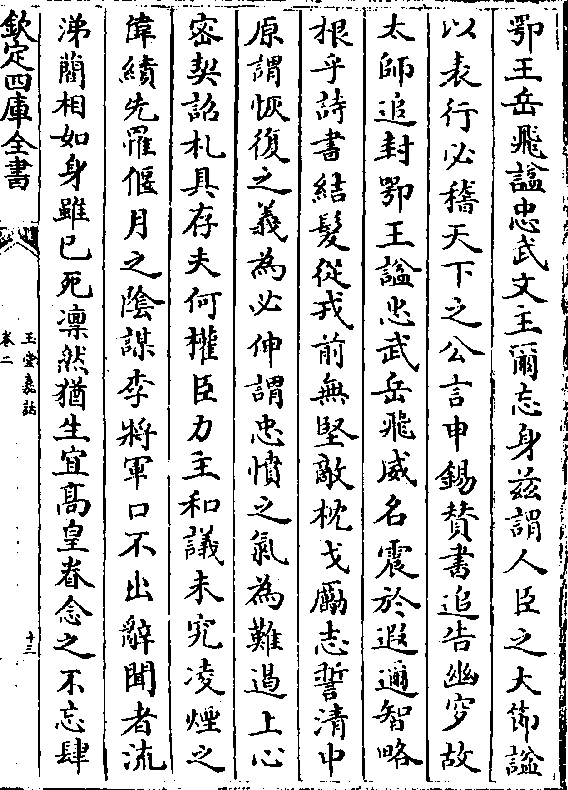 鄂王岳飛諡忠武文主爾忘身兹謂人臣之大節諡
以表行必稽天下之公言申錫賛書追告幽穸故
太師追封鄂王諡忠武岳飛威名震於遐邇智略
根乎詩書結髮從戎前無堅敵枕戈厲志誓清中
原謂恢復之義為必伸謂忠憤之氣為難遏上心
密契詔札具存夫何權臣力主和議未究凌煙之
偉績先罹偃月之陰謀李將軍口不出辭聞者流
涕藺相如身雖已死凛然猶生宜髙皇眷念之不忘肆
欽定四庫全書
玉堂嘉話
卷二
十三